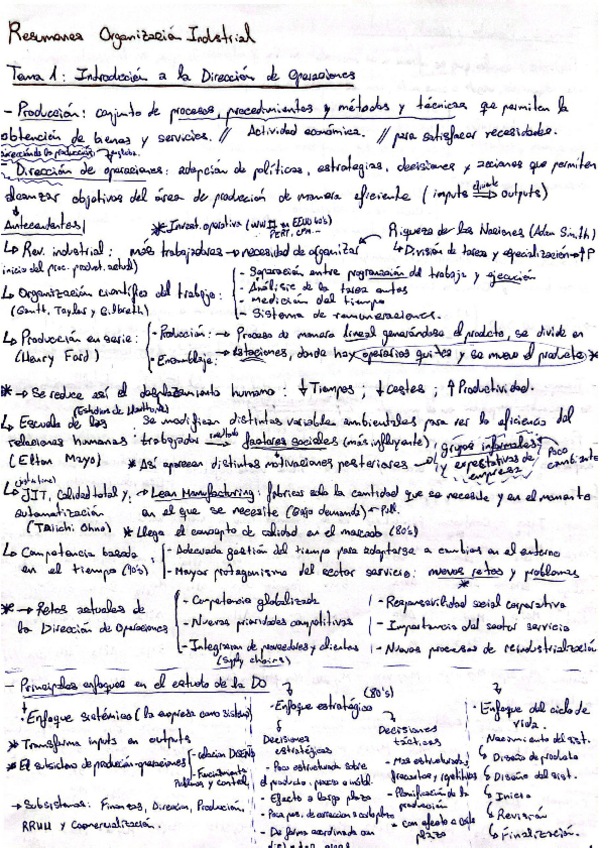 Resumenes Organización Industrial
Tema 1: Introducción a la Dirección de Operaciones
- Producción: conjunto de procesos, procedimientos y métodos y técnicas que permiten la
obtención de bienes y servicios. // Actividad económica. // para satisfacer necesidades.
dirección de la producción
Dirección de operaciones: adopción de políticas, estrategias, decisiones y acciones que permiten
alcanzar objetivos del área de producción de manera eficiente (inputs ⇒ outputs)
Antecedentes
* Invest. operativa (WW II EEUU 40's)
PERT, CPM...
Riqueza de las Naciones (Adam Smith)
↳ División de tareas y especialización → ↑P
↳ Rev. industrial: más trabajadores → necesidad de organizar
inicio del proc. product. actual)
↳ Organización científica del trabajo:
(Gantt, Taylor y Gilbreth)
- Separación entre programación del trabajo y ejecución
- Análisis de la tarea
- medición del tiempo
- Sistema de remuneraciones.
↳ Producción en serie:
(Henry Ford)
- Producción: → Proceso de manera lineal generándose el producto, se divide en
- Ensamblaje: → estaciones, donde hay operarios quietos y se mueve el producto *
* → Se reduce así el desplazamiento humano: ↓ Tiempos; ↓ Costes; ↑ Productividad.
↳ Escuela de las relaciones humanas:
(Elton Mayo)
(Estudios de Hawthorne)
Se modifican distintas variables ambientales para ver la eficiencia del
trabajador → factores sociales (más influyente), grupos informales
y expectativas de empresa
* Así aparecen distintas motivaciones posteriores
↳ JIT, Calidad total y automatización
(Taiichi Ohno)
→ Lean Manufacturing: fabricar solo la cantidad que se necesite y en el momento
en el que se necesite (bajo demanda)
* Llega el concepto de calidad en el mercado (80's)
↳ Competencia basada en el tiempo (90's)
- Adecuada gestión del tiempo para adaptarse a cambios en el entorno
- Mayor protagonismo del sector servicio: nuevos retos y problemas
* → Retos actuales de la Dirección de Operaciones
- Competencia globalizada
- Nuevas prioridades competitivas
- Integración de proveedores y clientes
(Supply chains)
- Responsabilidad social corporativa
- Importancia del sector servicio
- Nuevos procesos de reindustrialización
- Principales enfoques en el estudio de la DO
· Enfoque sistémico (la empresa como sistema)
* Transforma inputs en outputs
* El subsistema de producción operaciones
- DISEÑO
- Funcionamiento
y control
→ Subsistemas: Finanzas, Dirección, Producción,
RRHH y Comercialización.
(80's)
- Enfoque estratégico
Decisiones estratégicas
- Poco estructurada sobre
el producto, proceso o instal.
- Efecto a largo plazo
- De forma coordinada con
Decisiones tácticas
- Más estructuradas,
frecuentes y repetitivas
- Planificación de la producción
- con efecto a corto plazo
· Enfoque del ciclo de vida.
Nacimiento del sist.
↳ Diseño de producto
↳ Diseño del sist.
↳ Inicio
↳ Revisión
↳ Finalización.